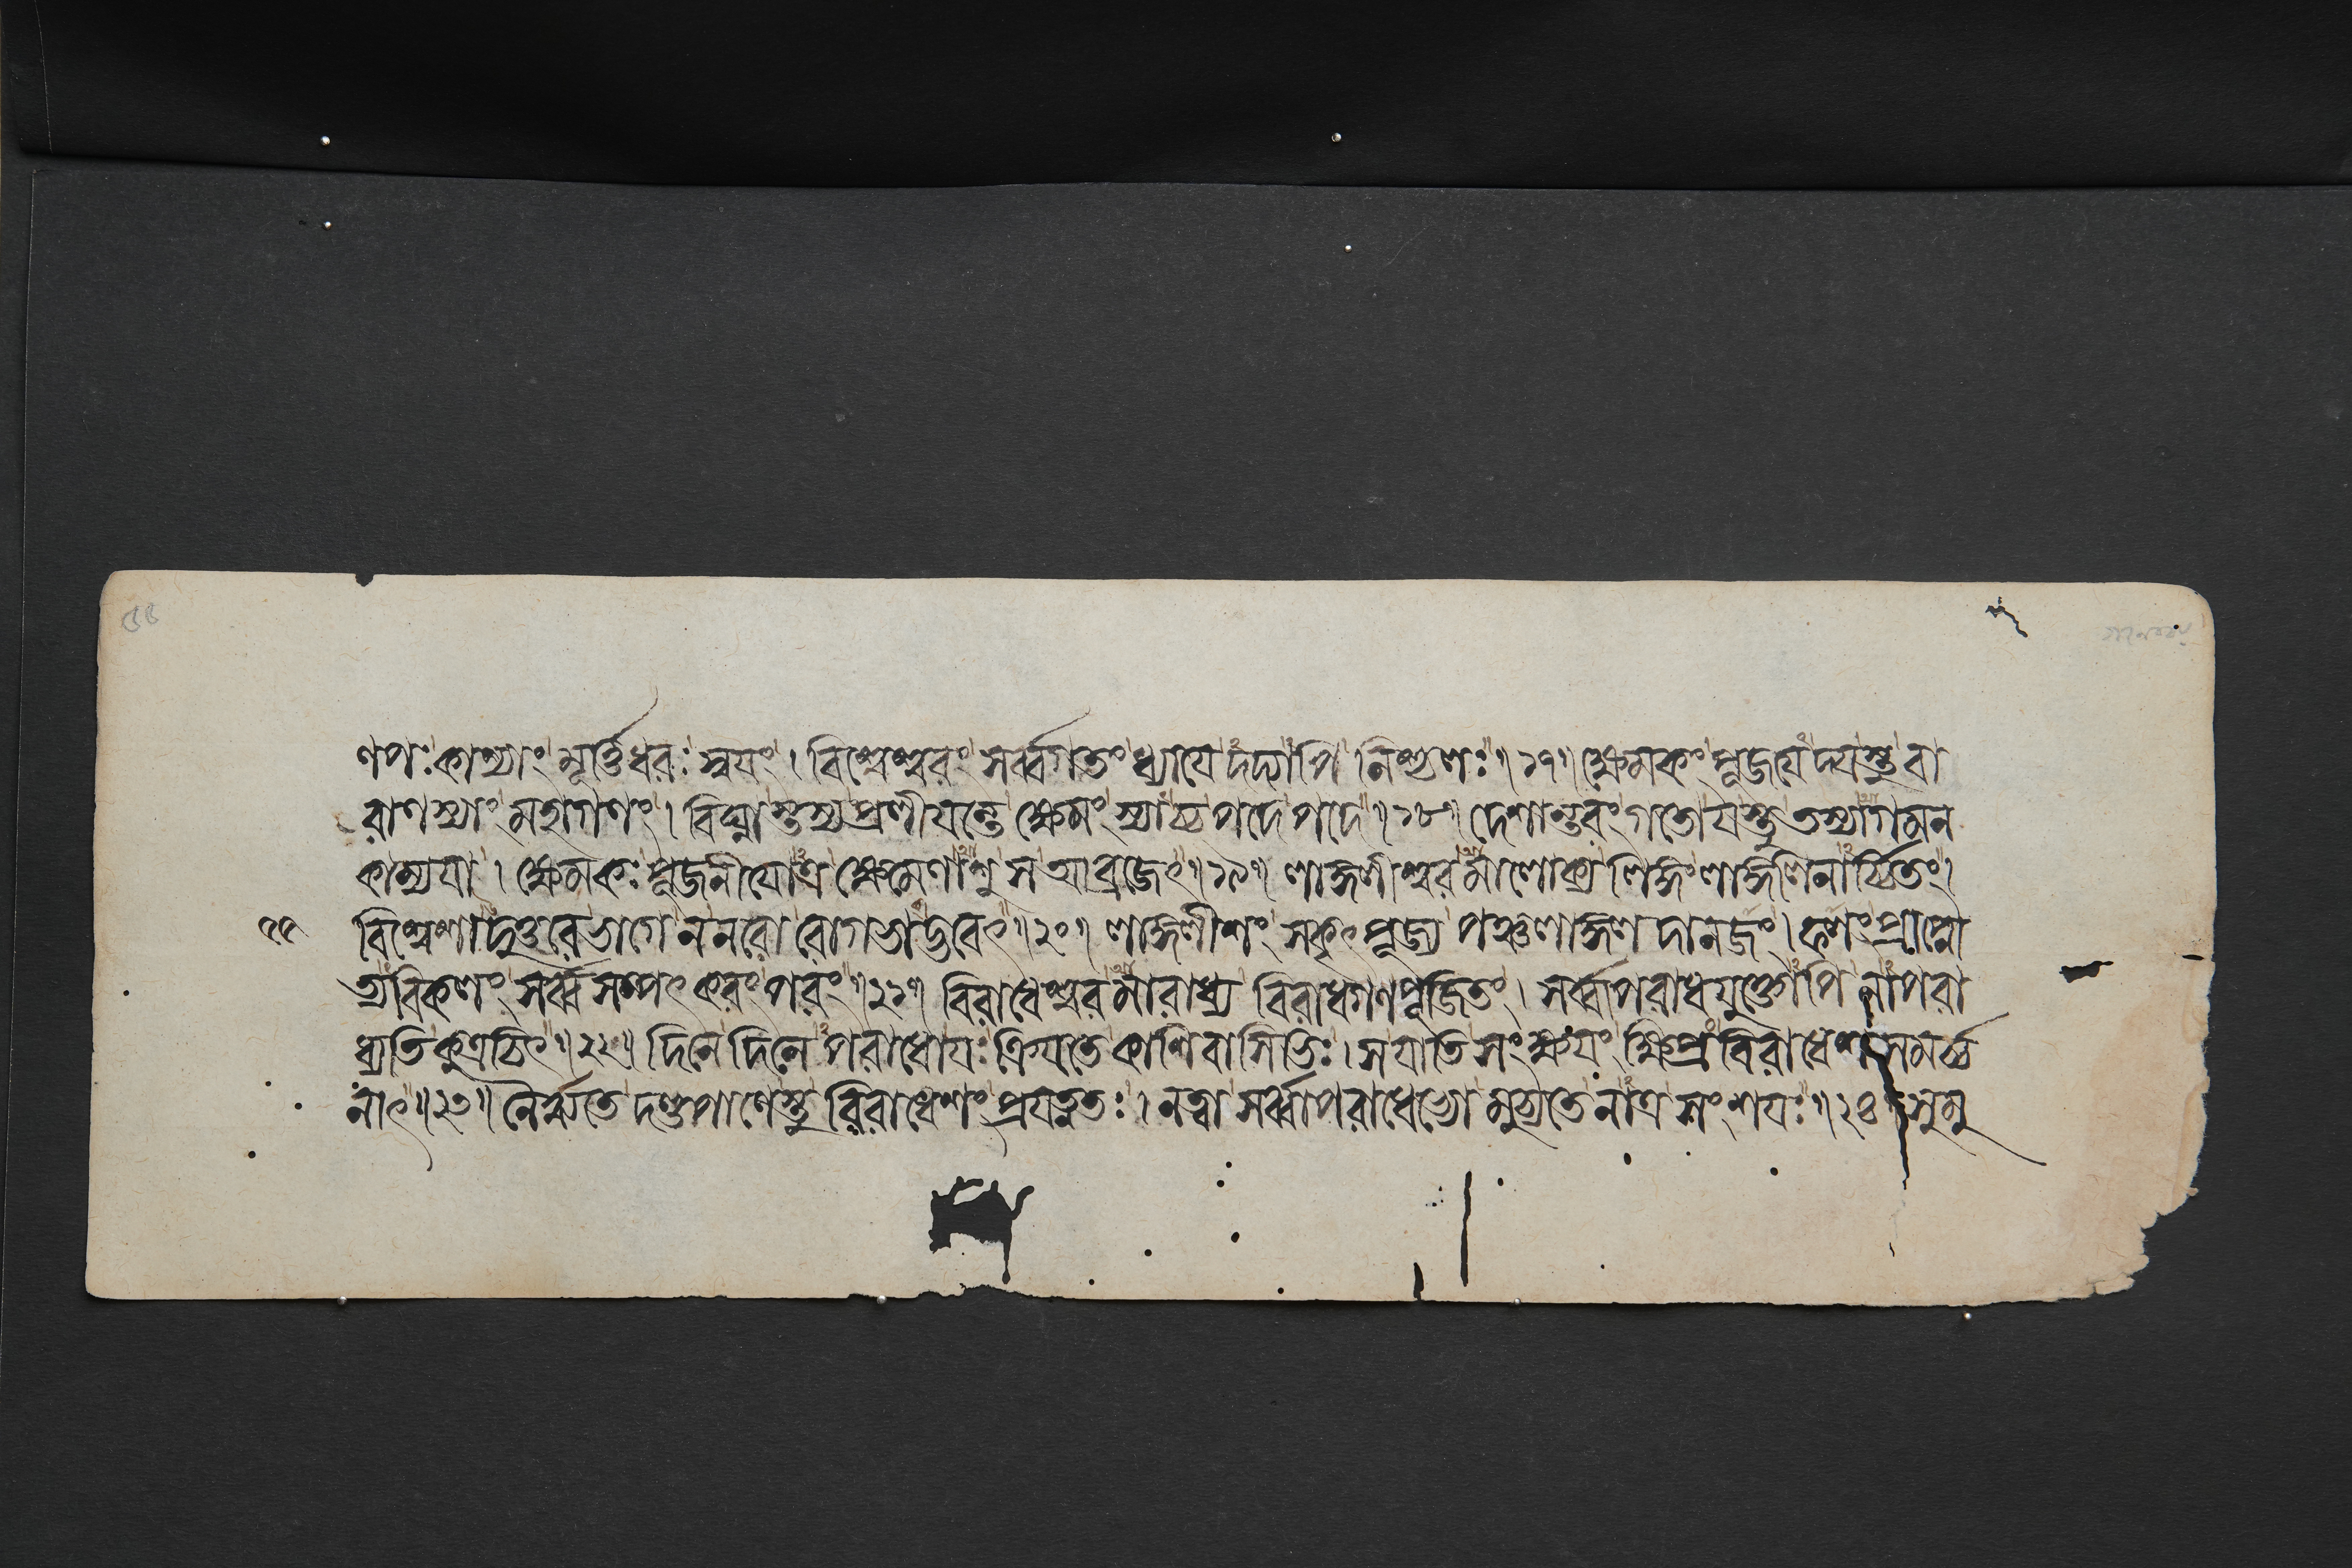 ণপঃ কাশ্যাং মূর্ত্তিধরঃ স্বয়ং। বিশ্বেশ্বরং সর্ব্বগতং ধ্যায়েদদ্যাপি নিশ্চলঃ॥১৭॥ ক্ষেমকং পূজয়েদ্যস্তু বা
রাণস্যাং মহাগণং। বিঘ্নাস্তস্য প্রলীয়ন্তে ক্ষেমং স্যাচ্চ পদে পদে॥১৮॥ দেশান্তরং গতো যস্তু তস্যাগমন
কাম্যয়া। ক্ষেমকঃ পূজনীয়োত্র ক্ষেমেণাশু স আব্রজেৎ॥১৯॥ লাঙ্গলীশ্বরমালোক্য লিঙ্গং লাঙ্গলিনার্চ্চিতং।
৫৫ বিশ্বেশাদুত্তরে ভাগে ন নরো রোগভাগ্ভবেৎ॥২০॥ লাঙ্গলীশং সকৃৎ পূজ্য পঞ্চলাঙ্গলদানজং। ফলং প্রাপ্নো
ত্যবিকলং সর্ব্বসম্পৎকরং পরং॥২১॥ বিরাধেশ্বরমারাধ্য বিরাধগণপূজিতং। সর্ব্বাপরাধযুক্তোপি নাপরা
ধ্যতি কুত্রচিৎ॥২২॥ দিনে দিনেপরাধো যঃ ক্রিয়তে কাশিবাসিভিঃ। স যাতি সংক্ষয়ং ক্ষিপ্রং বিরাধেশসমর্চ্চ
নাৎ॥২৩॥ নৈরৃতে দণ্ডপাণেস্তু বিরাধেশং প্রযত্নতঃ। নত্বা সর্ব্বাপরাধেভ্যো মুচ্যতে নাত্র সংশয়ঃ॥২৪॥ সুমু